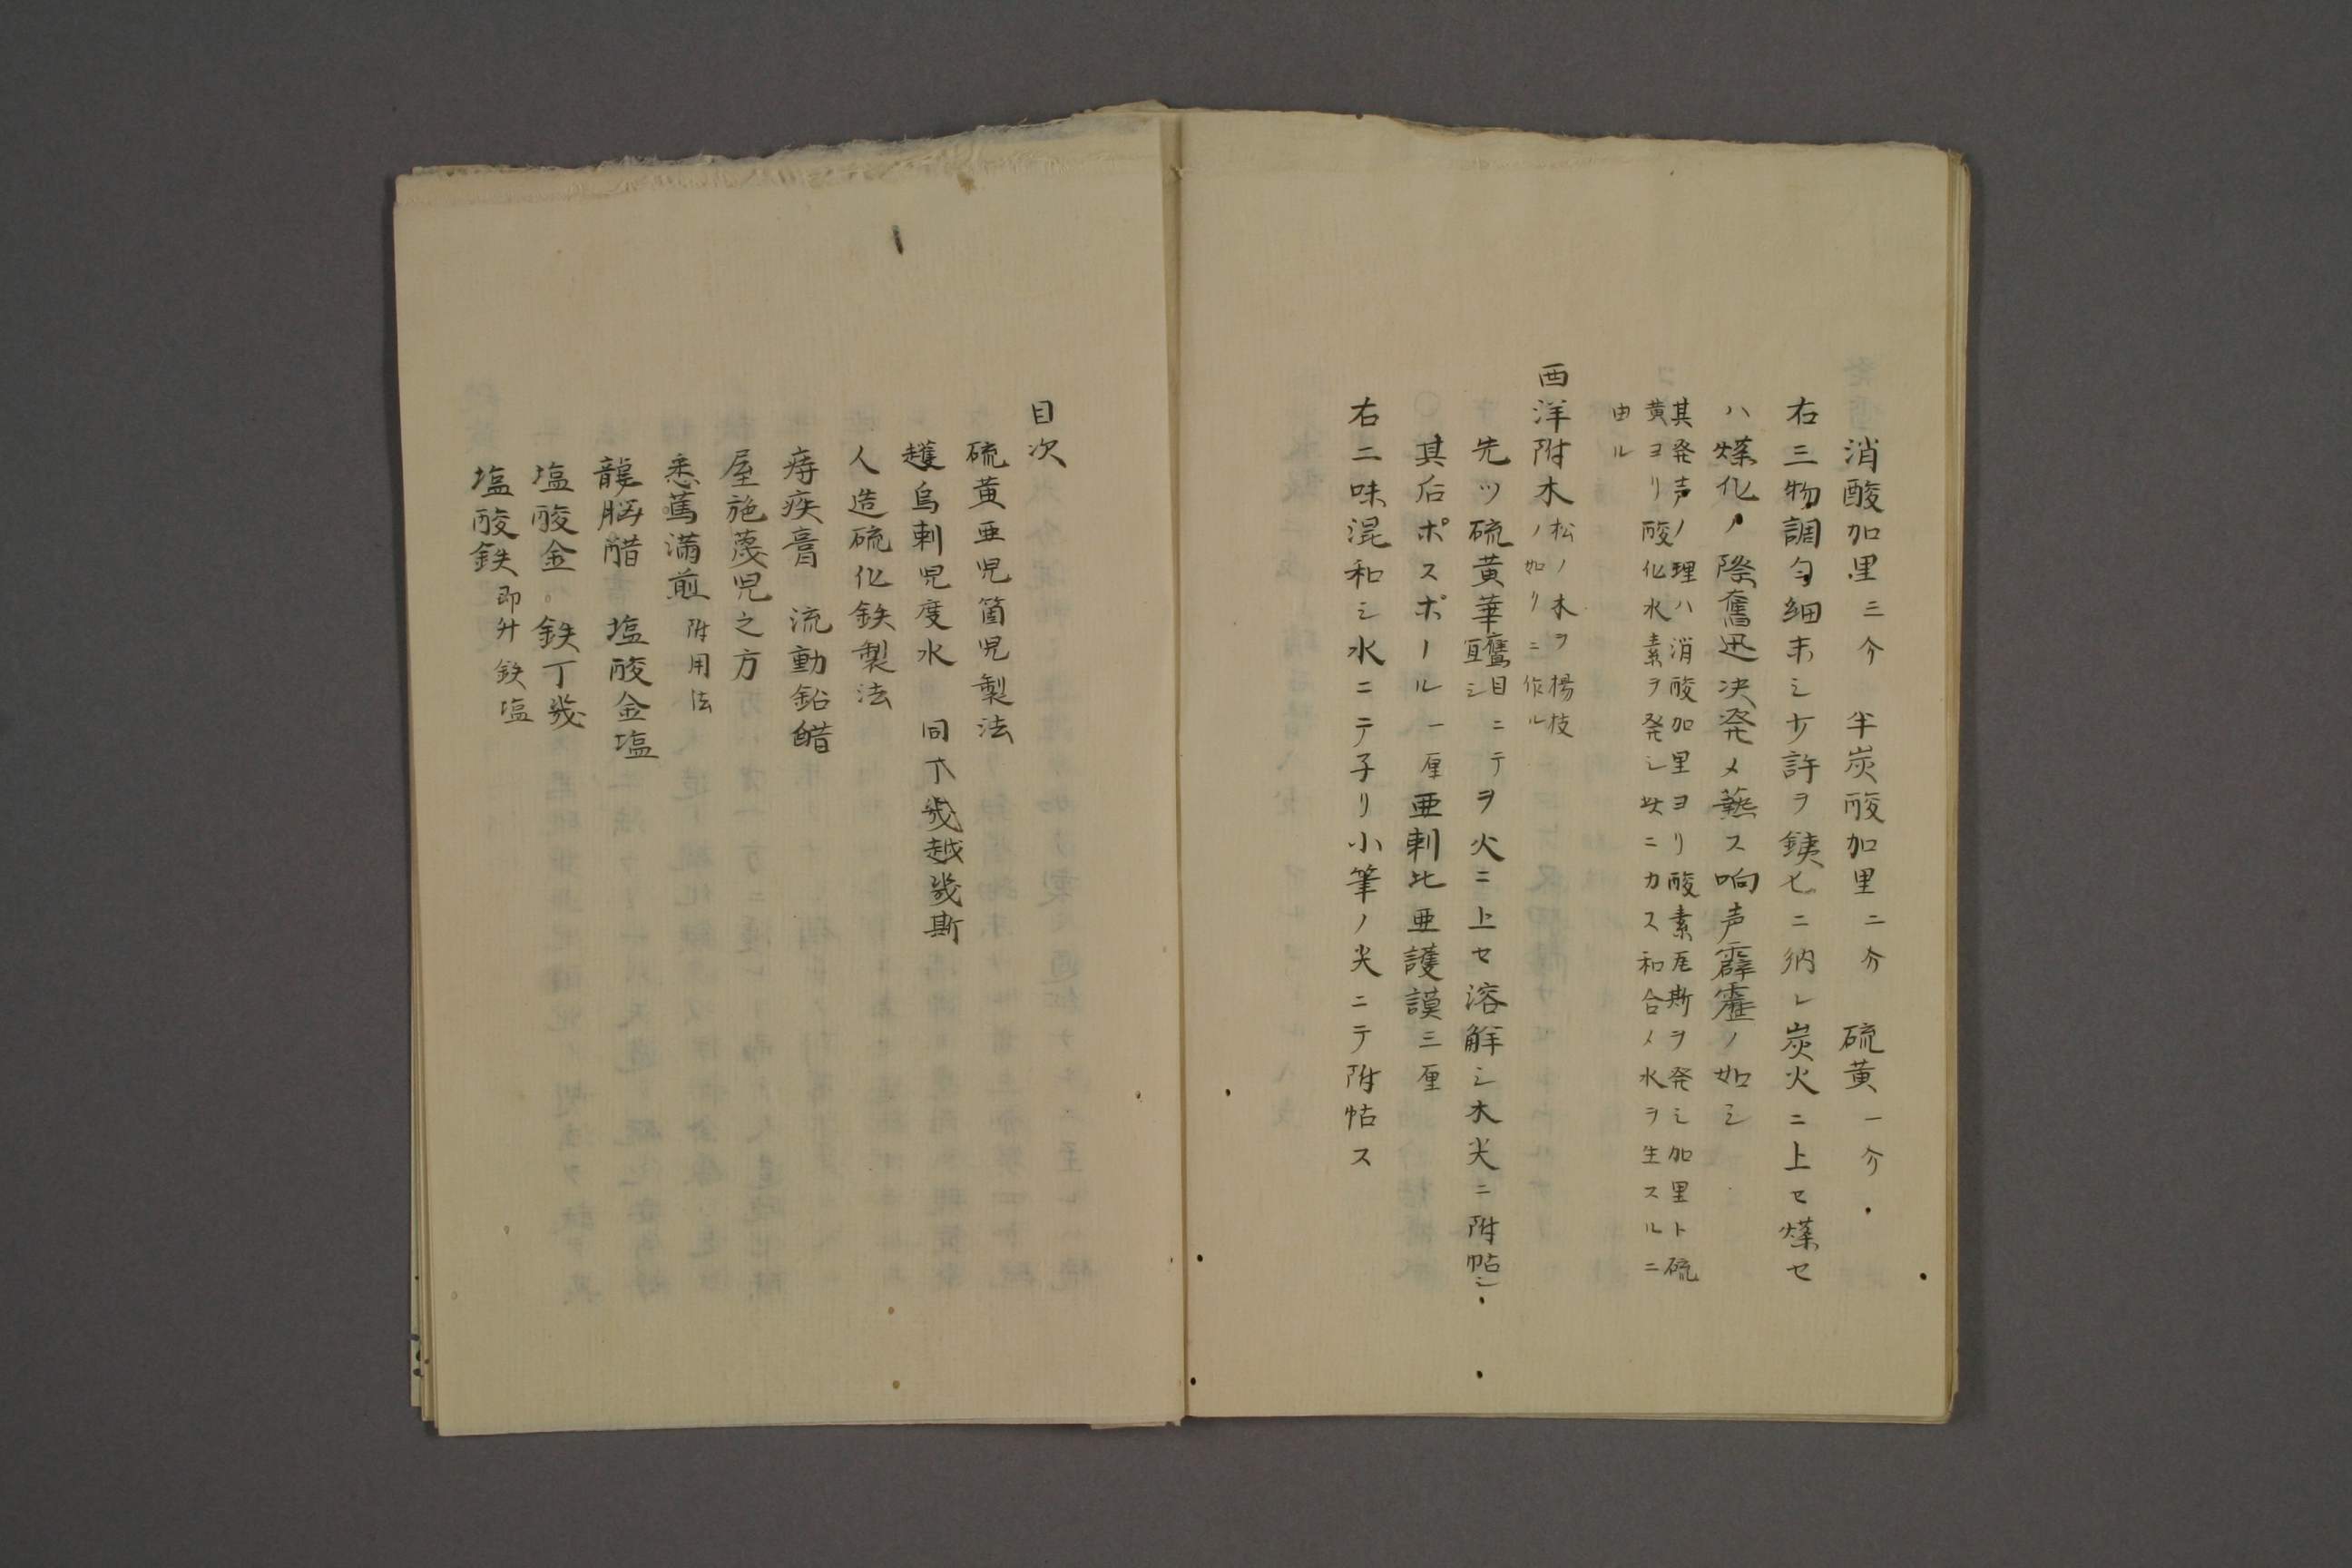 消酸加里三介　半炭酸加里二介　硫黄一介
右三物調匀細末シ少許ヲ銕匕ニ納レ炭火ニ上セ㷶セ
ハ㷶化ノ際奮迅决発メ爇ス响声霹靂ノ如シ
其発声ノ理ハ消酸加里ヨリ酸素瓦斯ヲ発シ加里ト硫
黄ヨリ酸化水素ヲ発シ此ニカス和合メ水ヲ生スルニ
由ル
西洋附木
松ノ木ヲ楊枝
ノ如リニ作ル
先ツ硫黄華目ニテヲ火ニ上セ溶解シ木尖ニ附帖シ
其后ポスポール一厘亜剌比亜護謨三厘
右二味混和シ水ニテ子リ小筆ノ尖ニテ附帖ス
目次
硫黄亜児箇児製法
烏剌児度水　同
人造硫化鉄製法
痔疾膏　流動鉛醋
屋施蔑児之方
悉篤満煎　附用法
龍脳醋　塩酸金塩
塩酸金。鉄丁幾
塩酸鉄　即舛鉄塩